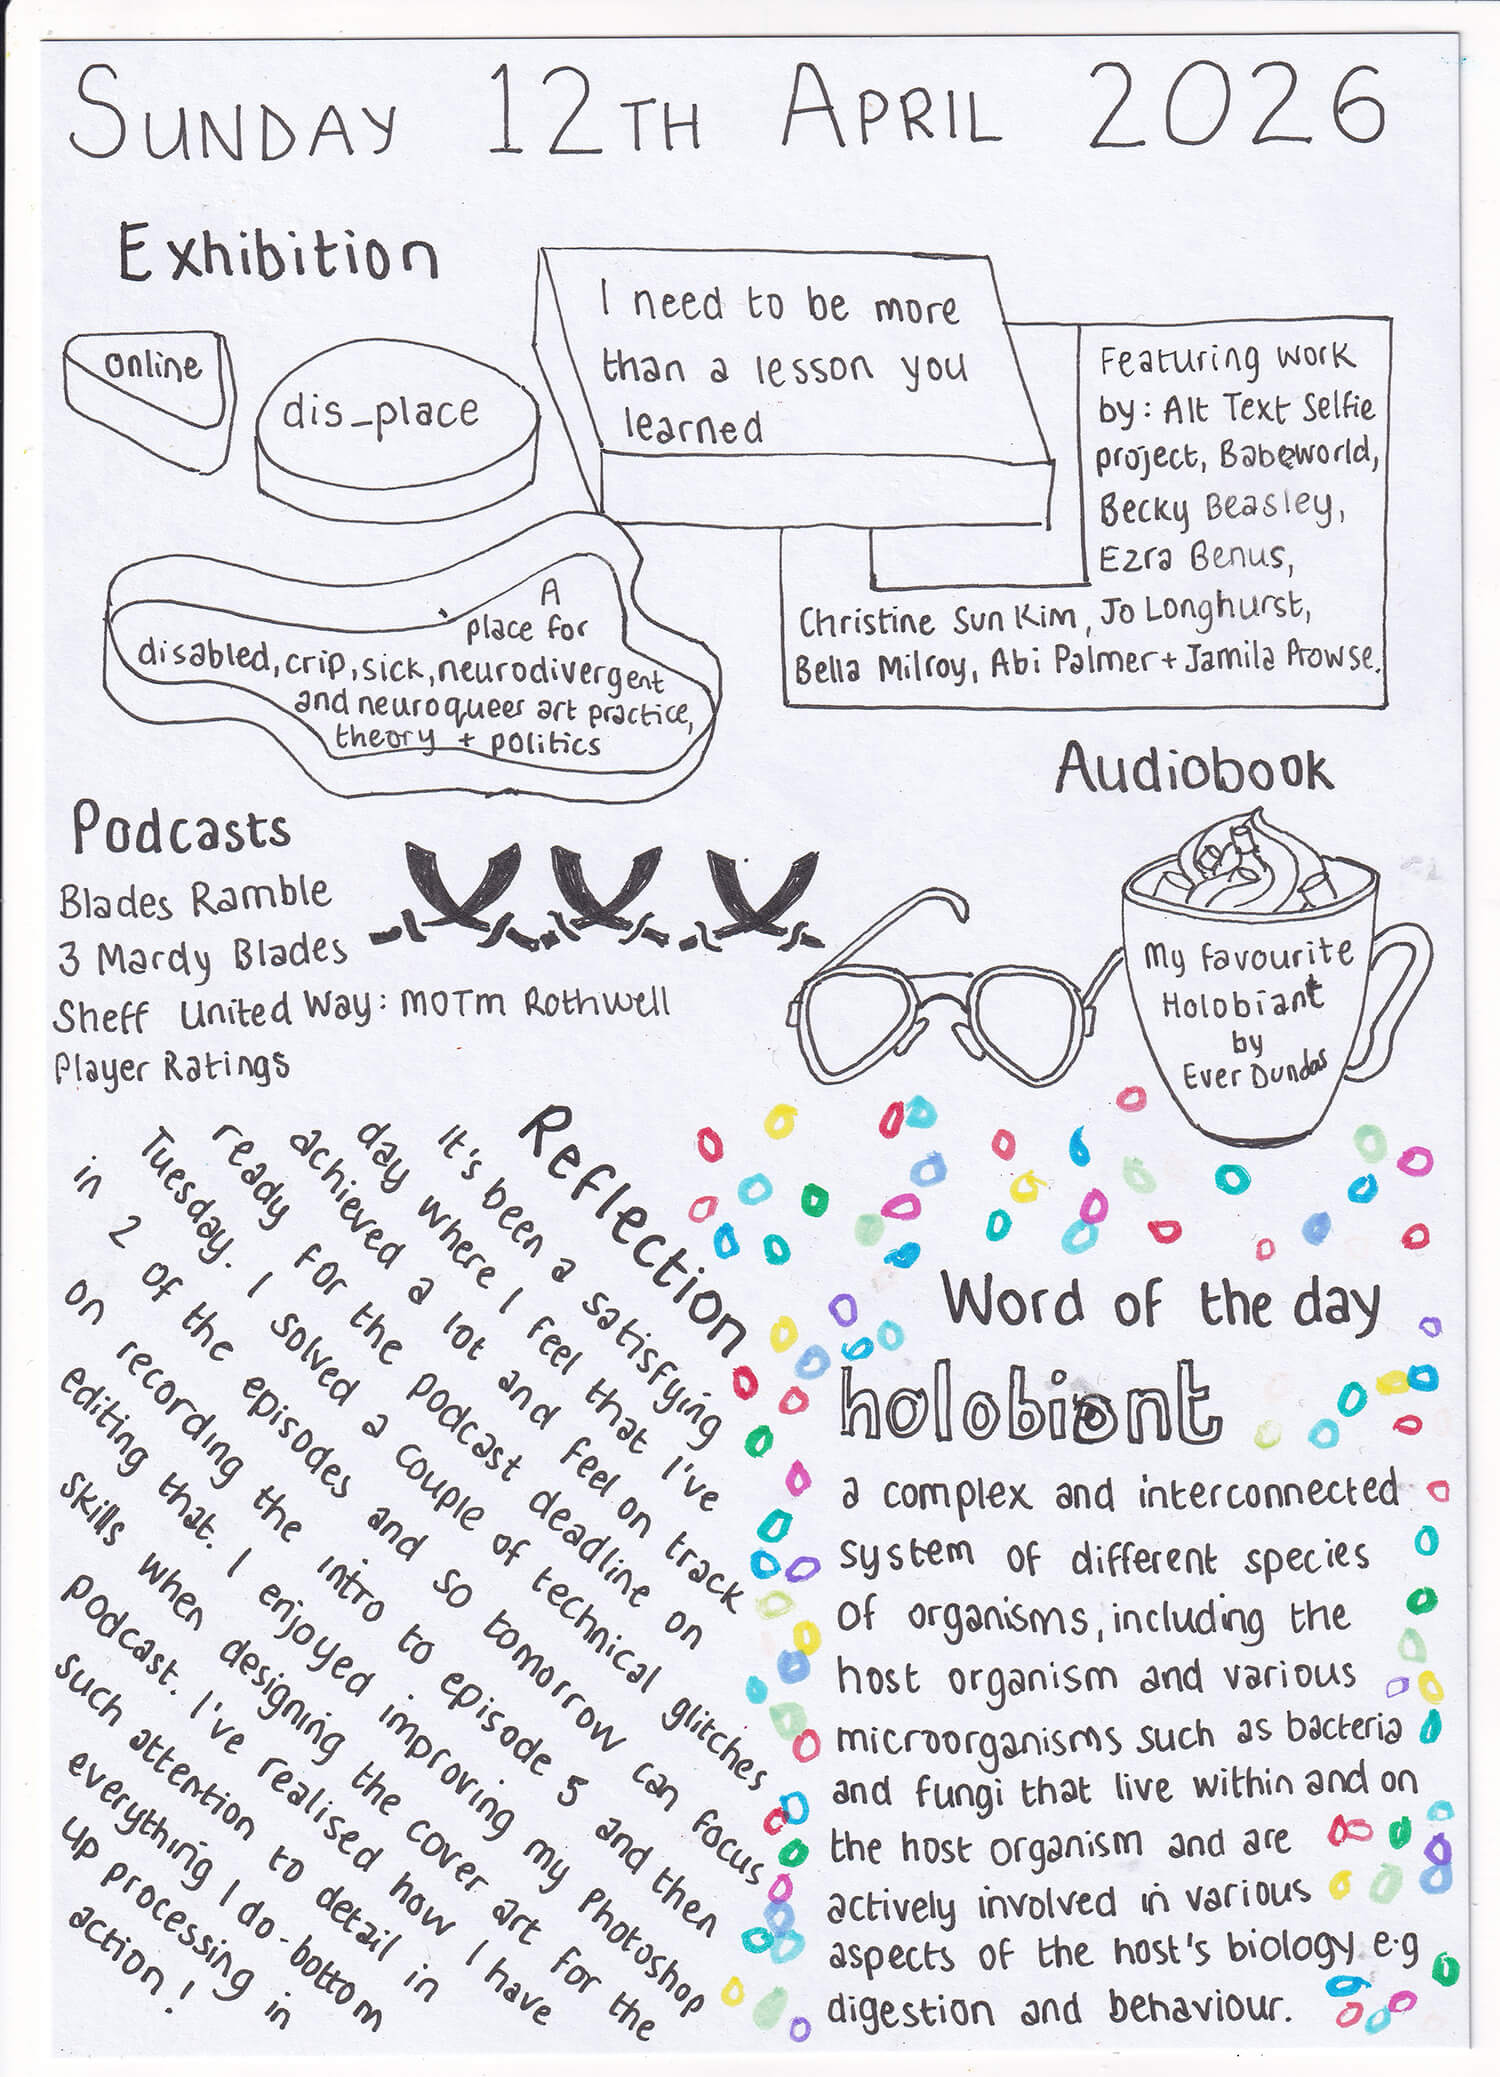 SUNDAY 12TH APRIL 2026
Exhibition
online
dis_place
I need to be more
than a lesson you
learned
Featuring work
by: Alt Text Selfie
project, Babeworld,
Becky Beasley,
Ezra Benus,
Christine Sun Kim, Jo Longhurst,
Bella Milroy, Abi Palmer + Jamila Prowse.
A
place for
disabled, crip, sick, neurodivergent
and neuroqueer art practice,
theory + politics
Podcasts
Blades Ramble
3 Mardy Blades
Sheff United Way: MOTM Rothwell
Player Ratings
Audiobook
My favourite
Holobiant
by
Ever Dundas
Reflection
It's been a satisfying
day where I feel that I've
achieved a lot and feel on track
ready for the podcast deadline on
Tuesday. I solved a couple of technical glitches
in 2 of the episodes and so tomorrow can focus
on recording the intro to episode 5 and then
editing that. I enjoyed improving my Photoshop
skills when designing the cover art for the
podcast. I've realised how I have
such attention to detail in
everything I do - bottom
up processing in
action!
Word of the day
holobiont
a complex and interconnected
system of different species
of organisms, including the
host organism and various
microorganisms such as bacteria
and fungi that live within and on
the host organism and are
actively involved in various
aspects of the host's biology e.g
digestion and behaviour.